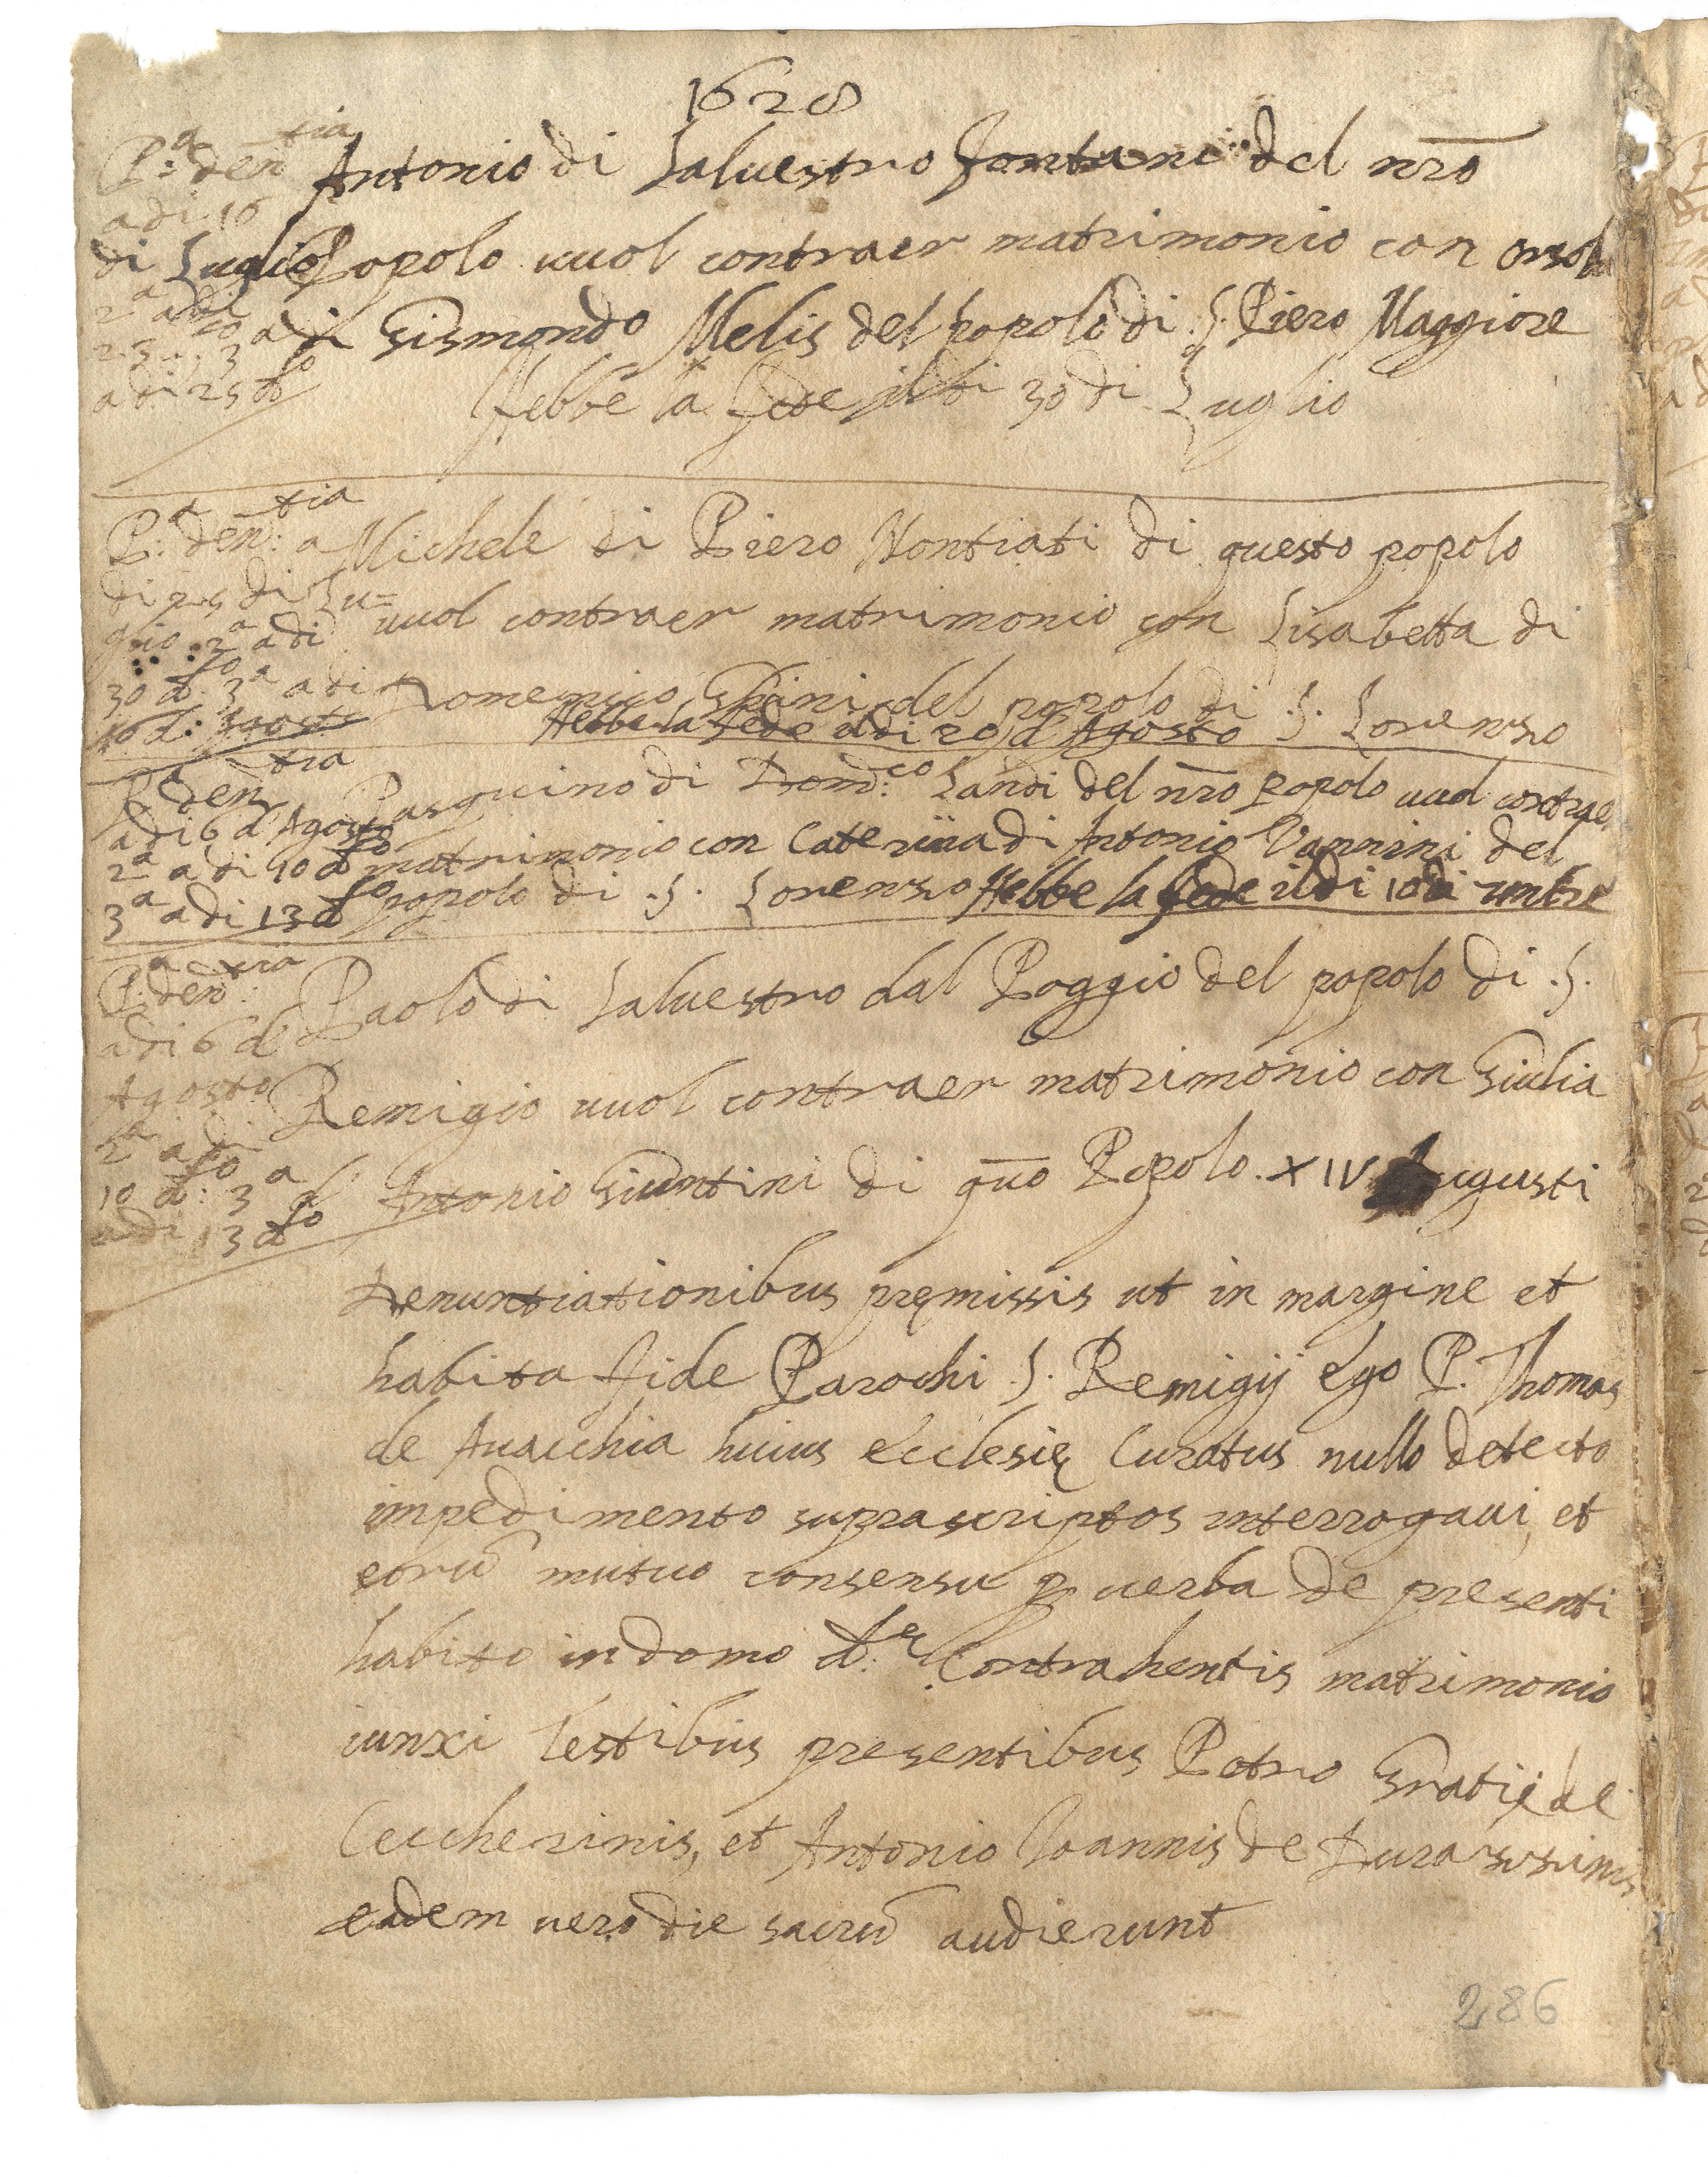 1628
P.ª den.tia
adi 16
di Luglio
2ª adi
23 3ª
adi 25 d.o
Antonio di Saluestro Fontani del nr̄o
Popolo uuol contraer matrimonio con Orsola
di Gismondo Melis del popolo di .S. Piero Maggiore
Hebbe la fede il di 30 di Luglio
P.ª den.tia a
di 25 di Lu=
glio 2ª adi
30 d.o 3ª adi
Michele di Piero Nontiati di questo popolo
uuol contraer matrimonio con Lisabetta di
Domenico del popolo di .S. Lorenzo
Hebbe la fede il di 20 d'Agosto
P.ª den.tia
adi 6 d'Agosto
2ª adi 10 d.o
3ª adi 13 d.o
Pasquino di Dom.co Landi del nr̄o popolo uuol contraer
matrimonio con Caterina di Antonio Vannini del
popolo di .S. Lorenzo Hebbe la fede il di 10 di
P.ª den.tia
adi 6 d'
Agosto
2ª adi
10 d.o 3ª
adi 13 d.o
Paolo di Saluestro dal Poggio del popolo di .S.
Remigio uuol contraer matrimonio con Giulia
d'Antonio Giuntini di qūo Popolo. XIV Augusti
Denuntiationibus pręmissis ut in margine et
habita fide Parochi .S. Remigij ego P. Thomas
de Auacchia huius ecclesię Curatus nullo detecto
impedimento suprascriptos interrogaui, et
eorū mutuo consensu ꝑ uerba de presenti
habito in domo d.ę Contrahentis matrimonio
iunxi Testibus presentibus Petro Gratię de
Ceccherinis, et Antonio Ioannis de Durazzinis
eadem uero die sacrū audierunt
286